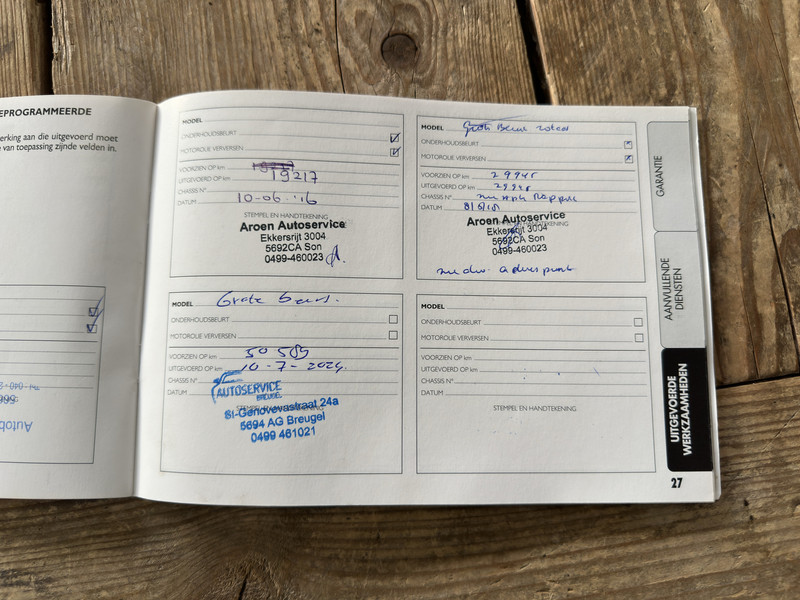 EPROGRAMMEERDE
erking aan die uitgevoerd moet
van toepassing zijnde velden in.
MODEL
ONDERHOUDSBEURT
MOTOROLIE VERVERSEN
VOORZIEN OP km
UITGEVOERD OP km 19217
CHASSIS N°
DATUM 10-06-'16
STEMPEL EN HANDTEKENING
Aroen Autoservice
Ekkersrijt 3004
5692CA Son
0499-460023
MODEL Grote Beurt
ONDERHOUDSBEURT
MOTOROLIE VERVERSEN
VOORZIEN OP km
UITGEVOERD OP km
CHASSIS N°
DATUM
STEMPEL EN HANDTEKENING
Aroen Autoservice
Ekkersrijt 3004
5692CA Son
0499-460023
MODEL Grote beurt.
ONDERHOUDSBEURT
MOTOROLIE VERVERSEN
VOORZIEN OP km 50 589
UITGEVOERD OP km 10-7-2024
CHASSIS N°
DATUM
AUTOSERVICE
BREUGEL
STEMPEL EN HANDTEKENING
St-Genovevastraat 24a
5694 AG Breugel
0499 461021
MODEL
ONDERHOUDSBEURT
MOTOROLIE VERVERSEN
VOORZIEN OP km
UITGEVOERD OP km
CHASSIS N°
DATUM
STEMPEL EN HANDTEKENING
GARANTIE
AANVULLENDE
DIENSTEN
UITGEVOERDE
WERKZAAMHEDEN
27